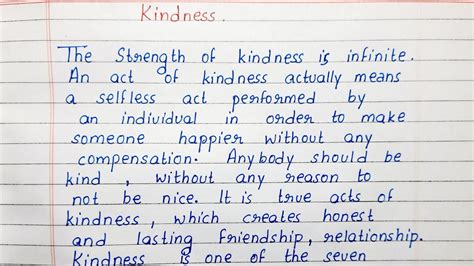 Kindness.
The Strength of kindness is infinite.
An act of kindness actually means
a selfless act performed by
an individual in order to make
someone happier without any
compensation. Anybody should be
kind, without any reason to
not be nice. It is true acts of
kindness, which creates honest
and lasting friendship, relationship.
Kindness is one of the seven